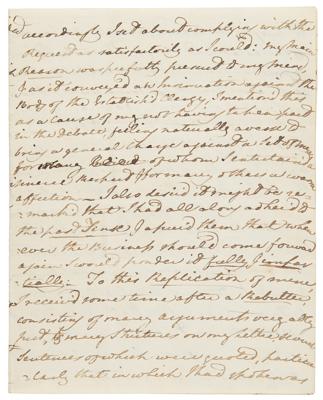 accordingly I set about complying with the
Request as satisfactorily as I could: my main
Reason was perfectly present to my mind
& as it conveyed an Insinuation against the
Body of the Establish'd Clergy, I mention'd this
as a cause of my not having taken a part
in the debate, feeling naturally averse to
bring a general Charge against a Set of men
for many of whom I entertained a
sincere & for many others a warm
affection — I also desired it might be re-
mark'd that I had all along adher'd to
the past Tense & assured them that when
ever the Business should come forward
again I would ponder it fully & impar
tially. To this Replication of mine
I received some time after a Rebutter,
consisting of many arguments very ably
put, & many Strictures on my letter, several
Sentences of which were quoted, particu
larly that in which I had spoken as